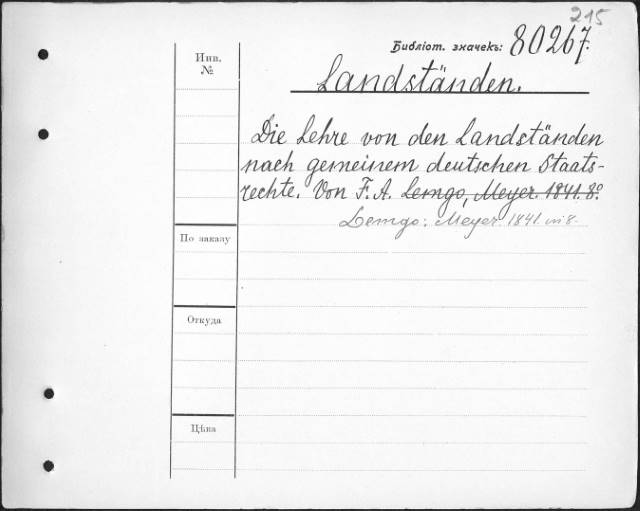 215
Библіот. значекъ: 80267.
Инв.
№
Landständen.
Die Lehre von den Landständen
nach gemeinem deutschen Staats-
rechte. Von F. A. Lemgo, Meyer. 1841. 8º.
Lemgo: Meyer. 1841. in 8.
По заказу
Откуда
Цѣна